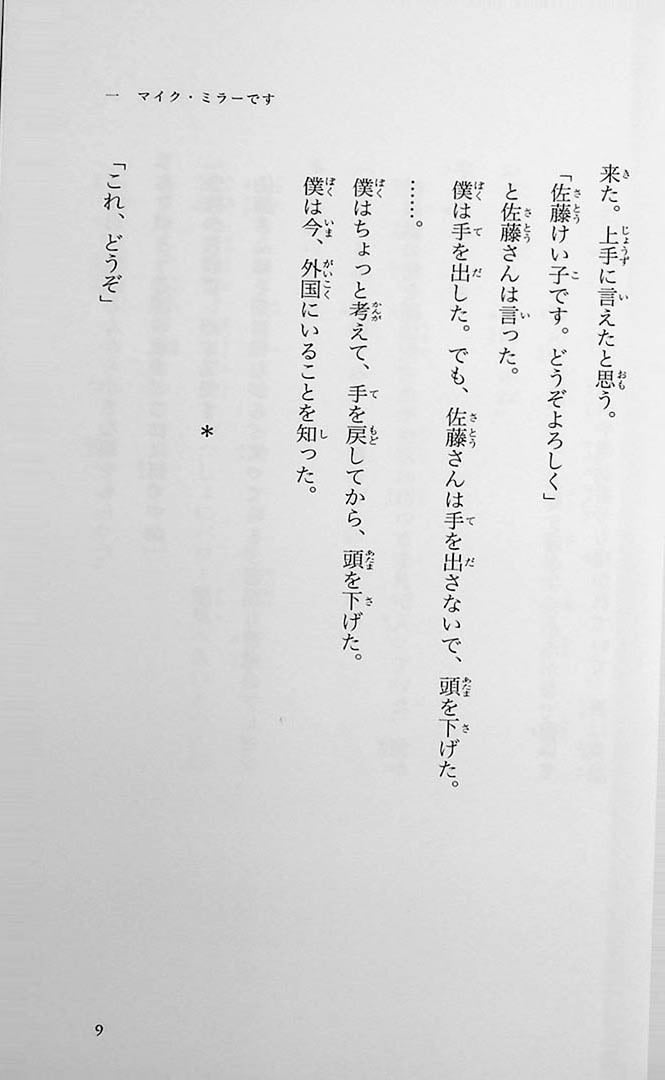 一　マイク・ミラーです
来た。上手に言えたと思う。
「佐藤けい子です。どうぞよろしく」
と佐藤さんは言った。
僕は手を出した。でも、佐藤さんは手を出さないで、頭を下げた。
……。
僕はちょっと考えて、手を戻してから、頭を下げた。
僕は今、外国にいることを知った。
＊
「これ、どうぞ」
9